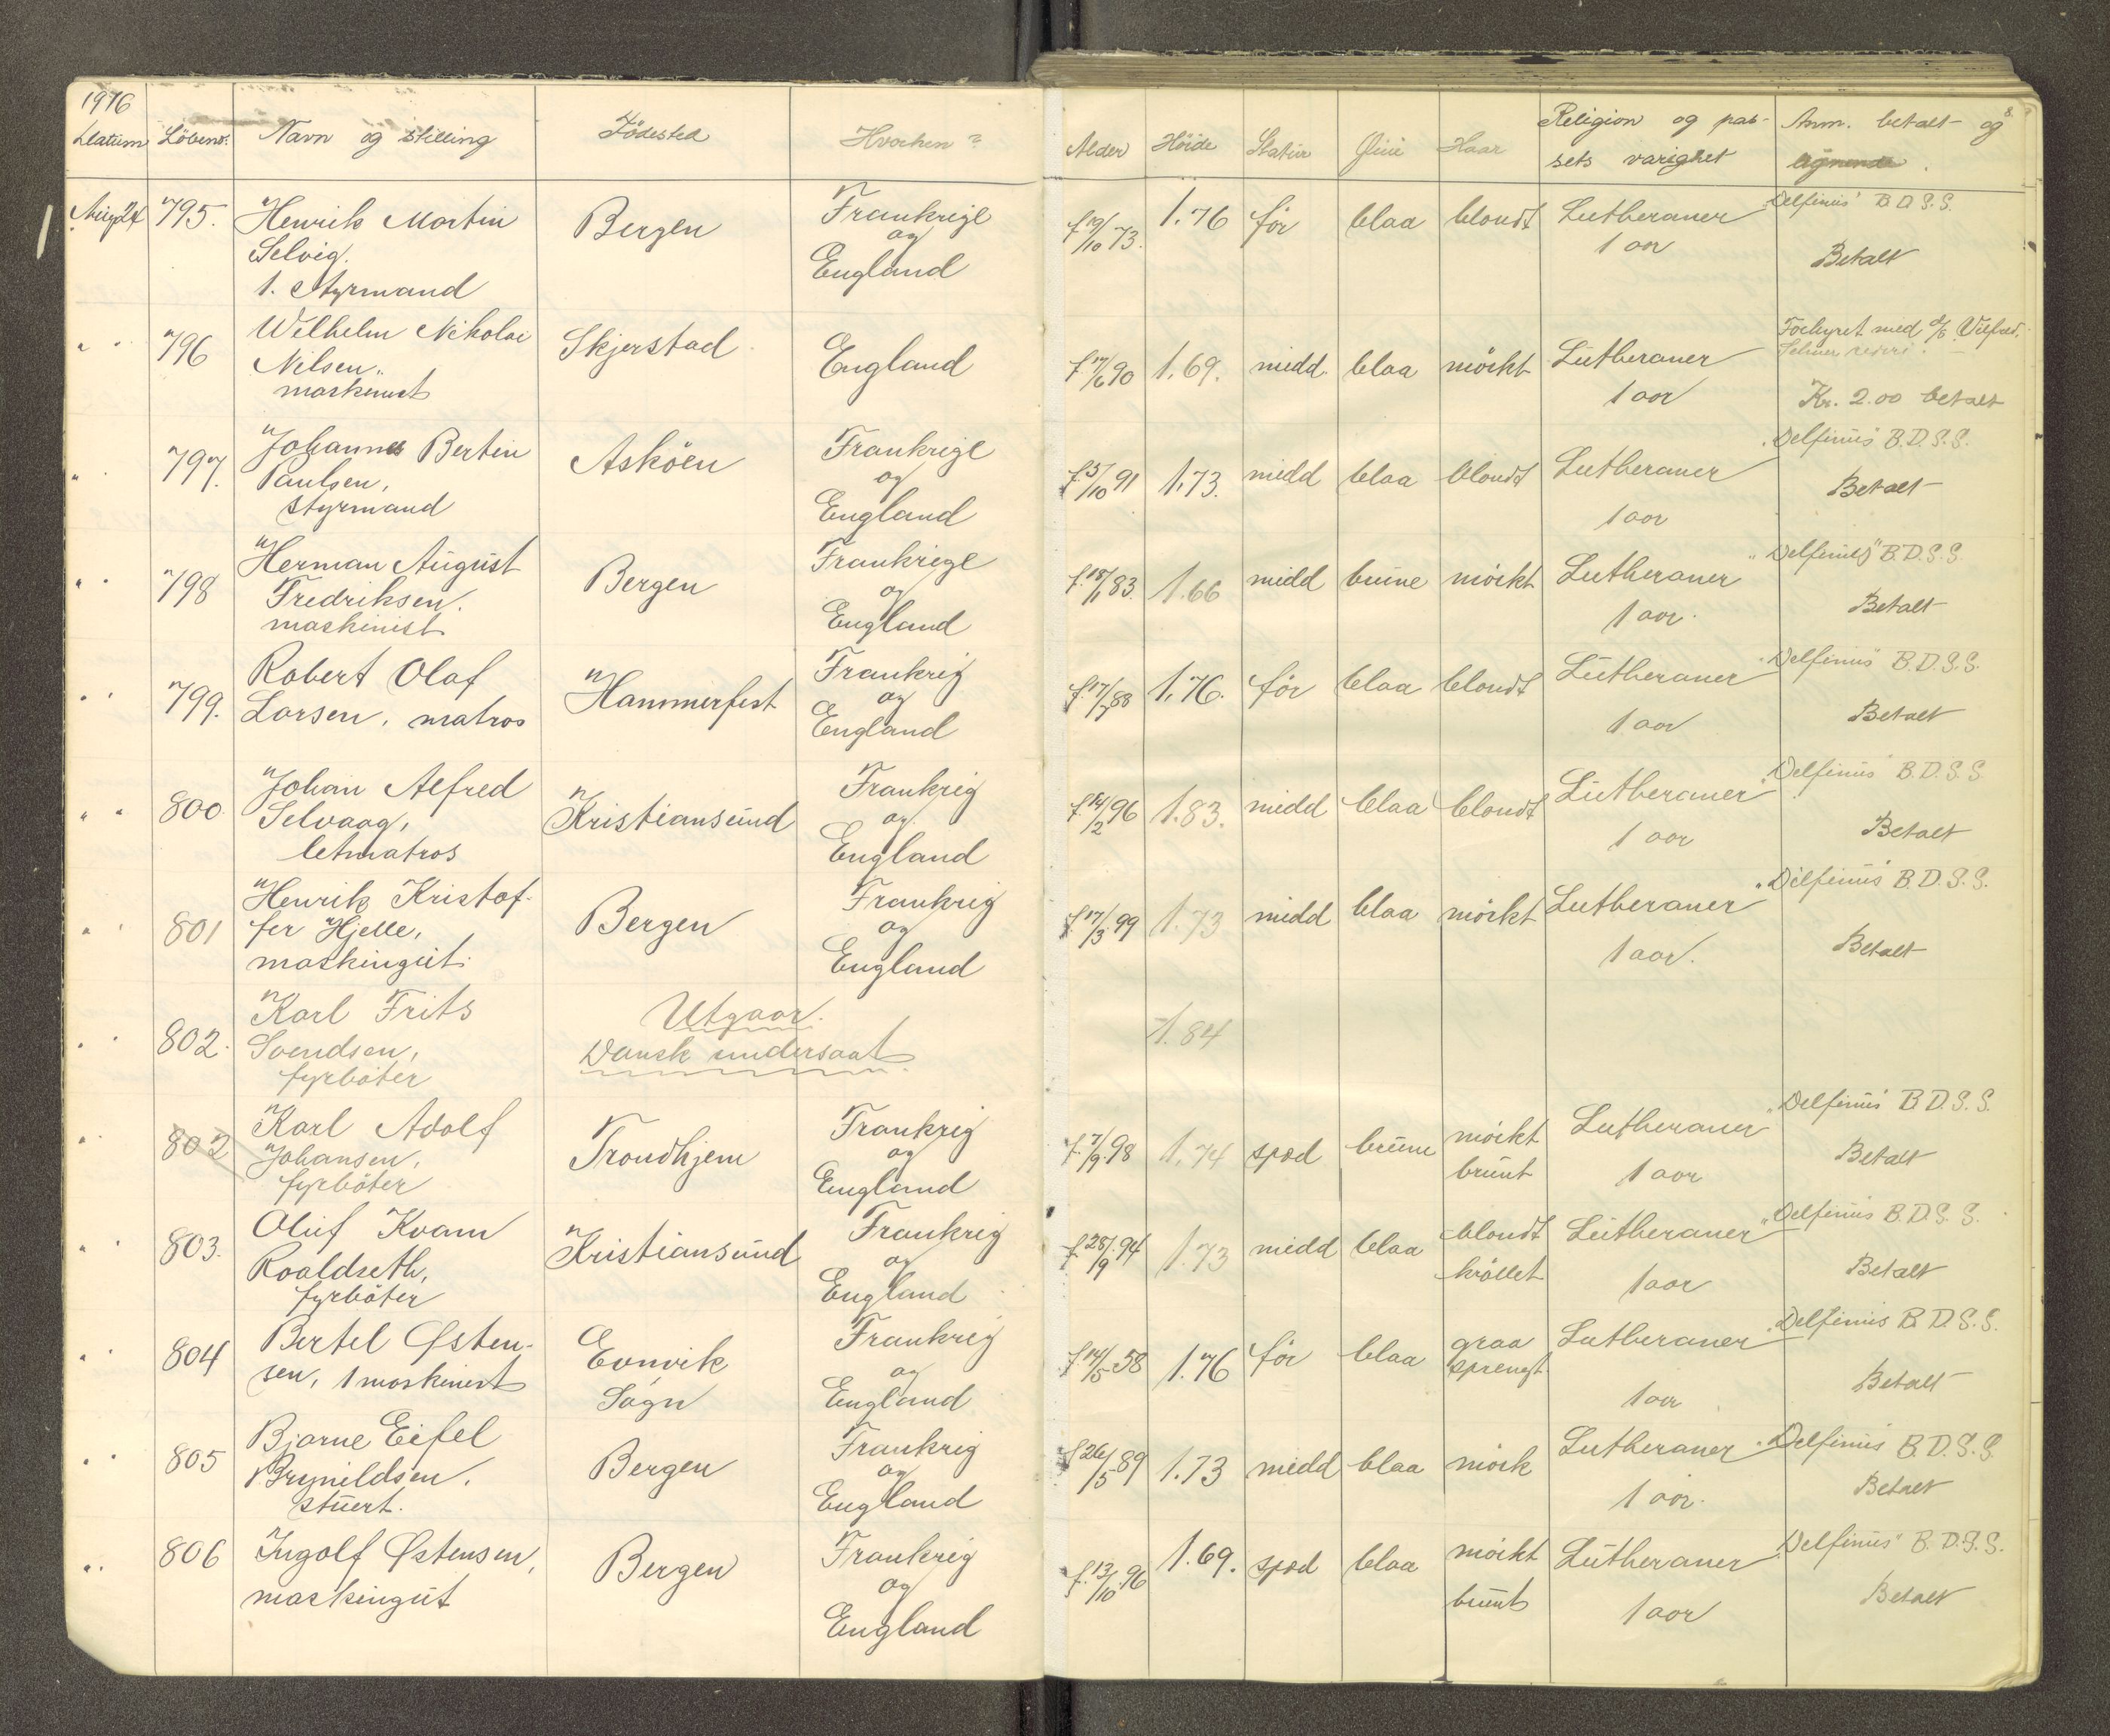 1916
Datum Löbenr. Navn og stilling Födested Hvorhen? Alder Höide Statur Öine Haar Religion og pas- Anm. betalt og
sets varighet
Aug 24 795. Henrik Martin Bergen Frankrige f 19/10 73. 1.76 før blaa blondt Lutheraner "Delfinus" B.D.S.S.
Selvig. og 1 aar Betalt
1. styrmand England
" " 796 Wilhelm Nikolai Skjerstad England f. 17/6 90 1.69. midd. blaa mörkt Lutheraner Forhyret med d/s Vilfred.
Nilsen, 1 aar
maskinist Kr. 2.00 betalt
" " 797. Johannes Bertin Asköen Frankrige f. 5/10 91 1.73. midd blaa blondt Lutheraner "Delfinus" B.D.S.S.
Paulsen, og 1 aar Betalt
styrmand England
" " 798 Herman August Bergen Frankrige f. 18/1 83. 1.66 midd brune mörkt Lutheraner "Delfinus" B.D.S.S.
Fredriksen. og 1 aar. Betalt
maskinist England
" " 799. Robert Olaf Hammerfest Frankrig f. 17/7 88 1.76. før blaa blondt Lutheraner "Delfinus" B.D.S.S.
Larsen, matros og 1 aar Betalt
England
" " 800 Johan Alfred Kristiansund Frankrig f. 14/2 96 1.83. midd blaa blondt Lutheraner "Delfinus" B.D.S.S.
Selvaag, og 1 aar Betalt
letmatros England
" " 801 Henrik Kristof- Bergen Frankrig f. 17/3 99 1.73 midd blaa mörkt Lutheraner "Delfinus" B.D.S.S.
fer Hjelle, og 1 aar. Betalt
maskingut. England
" " 802. Karl Frits Utgaar. 1.84
Svendsen, Dansk undersaat
fyrböter
" 802 Karl Adolf Trondhjem Frankrig f. 7/9 98 1.74 spæd brune mörkt Lutheraner "Delfinus" B.D.S.S.
Johansen, og brunt 1 aar Betalt
fyrböter England
" " 803. Oluf Kvam Kristiansund Frankrig f. 28/9 94 1.73 midd blaa blondt Lutheraner "Delfinus B.D.S.S.
Roaldseth, og kröllet 1 aar Betalt
fyrböter England
" " 804 Bertel Østen- Evnvik Frankrig f. 14/5 58 1.76 før blaa graa Lutheraner "Delfinus B.D.S.S.
sen, 1 maskinist Sogn og sprengt 1 aar Betalt
England
" " 805 Bjarne Eifel Bergen Frankrig f 26/5 89 1.73 midd blaa mörk Lutheraner "Delfinus B.D.S.S.
Brynildsen. og 1 aar. Betalt
stuert. England
" " 806 Ingolf Østensen, Bergen Frankrig f. 13/10 96 1.69. spæd blaa mörkt Lutheraner "Delfinus" B.D.S.S.
maskingut og brunt 1 aar Betalt
England